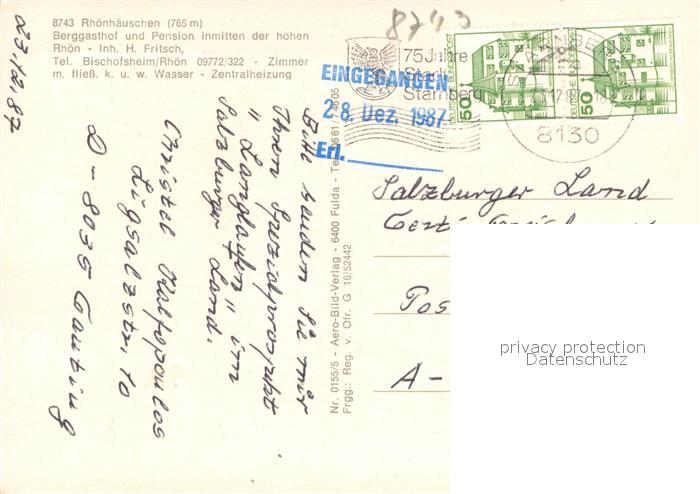 8743 Rhönhäuschen (765 m)
Berggasthof und Pension inmitten der hohen
Rhön - Inh. H. Fritsch,
Tel. Bischofsheim/Rhön 09772/322 - Zimmer
m. fließ. k. u. w. Wasser - Zentralheizung
23.12.87
8743
75 Jahre
Stadt
Starnberg
STARNBERG
8130
DEUTSCHE BUNDESPOST
50
DEUTSCHE BUNDESPOST
50
EINGEGANGEN
28. Dez. 1987
Erl.
Bitte senden Sie mir
Ihren Spezialprospekt
"Langlaufen" im
Salzburger Land.
Christel
Lügsalzstr. 10
D-8035 Gauting
Nr. 0155/5 - Aero-Bild-Verlag - 6400 Fulda - Tel.
Frgg.: Reg. v. Ofr. G 16/52442
Salzburger Land
Pos
A-
privacy protection
Datenschutz